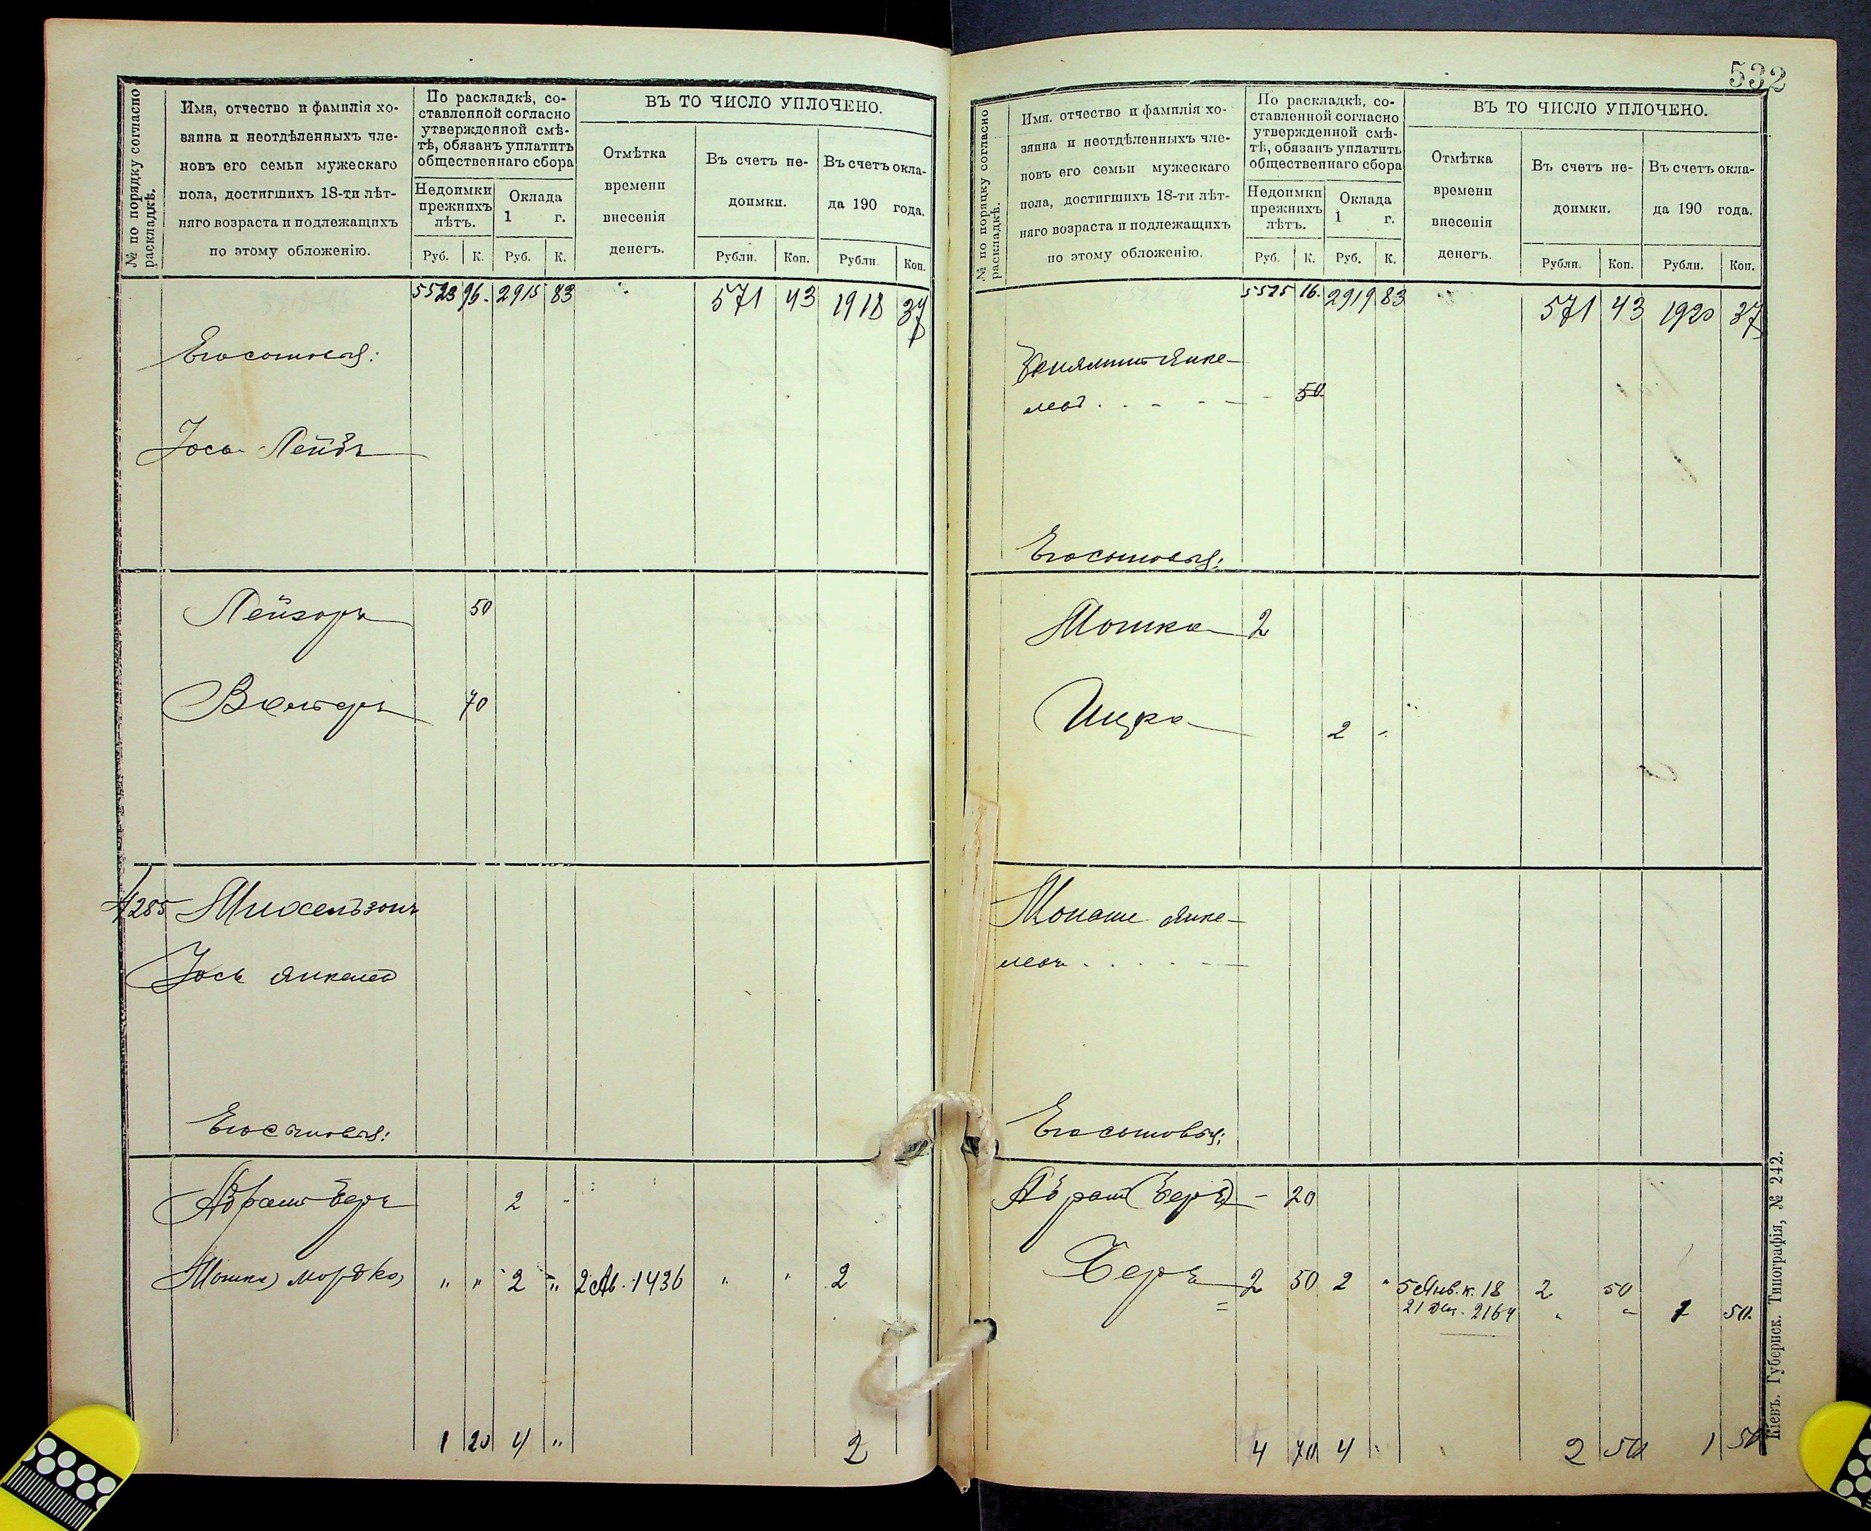 № по порядку согласно раскладкѣ.
Имя, отчество и фамилія хо-
зяина и неотдѣленныхъ чле-
новъ его семьи мужескаго
пола, достигшихъ 18-ти лѣт-
няго возраста и подлежащихъ
по этому обложенію.
По раскладкѣ, со-
ставленной согласно
утвержденной смѣ-
тѣ, обязанъ уплатить
общественнаго сбора
Недоимки
прежнихъ
лѣтъ.
Оклада
1 г.
Руб. К. Руб. К.
ВЪ ТО ЧИСЛО УПЛОЧЕНО.
Отмѣтка
времени
внесенія
денегъ.
Въ счетъ не-
доимки.
Въ счетъ окла-
да 190 года.
Рубли. Коп. Рубли. Коп.
5523 96. 2915 83 571 43 1918 37
Его сыновья:
Іось Лейбъ
Лейзоръ 50
Вольтеръ 70
4285 Михельзонъ
Іось Янкелев
Его сыновья:
Абрамъ Беръ 2 "
Мошко Мордко " " 2 " 2 Ав. 1436 " " 2
1 20 4 " 2
532
№ по порядку согласно раскладкѣ.
Имя, отчество и фамилія хо-
зяина и неотдѣленныхъ чле-
новъ его семьи мужескаго
пола, достигшихъ 18-ти лѣт-
няго возраста и подлежащихъ
по этому обложенію.
По раскладкѣ, со-
ставленной согласно
утвержденной смѣ-
тѣ, обязанъ уплатить
общественнаго сбора
Недоимки
прежнихъ
лѣтъ.
Оклада
1 г.
Руб. К. Руб. К.
ВЪ ТО ЧИСЛО УПЛОЧЕНО.
Отмѣтка
времени
внесенія
денегъ.
Въ счетъ не-
доимки.
Въ счетъ окла-
да 190 года.
Рубли. Коп. Рубли. Коп.
5525 16. 2919 83 571 43 1920 37
Беняминъ Янке-
левъ 50
Его сыновья:
Мошко 2
Ицко 2 "
Монаше Янке-
левъ
Его сыновья:
Абрам (Беръ) - 20
Беръ 2 50 2 " 5 Янв. к. 18 2 50
21 Дек. 2164 " " 1 50.
4 70 4 2 50 1 50
Кіевъ. Губернск. Типографія, № 242.